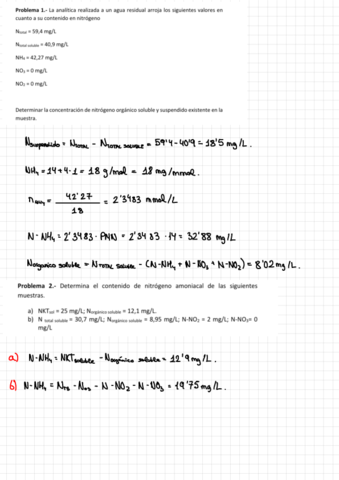 Problema 1.- La analítica realizada a un agua residual arroja los siguientes valores en
cuanto a su contenido en nitrógeno
Ntotal = 59,4 mg/L
Ntotal soluble = 40,9 mg/L
NH4 = 42,27 mg/L
NO3 = 0 mg/L
NO2 = 0 mg/L
Determinar la concentración de nitrógeno orgánico soluble y suspendido existente en la
muestra.
Nsuspendido = NTOTAL - NTOTAL SOLUBLE = 59'4 - 40'9 = 18'5 mg/L.
NH4 = 14 + 4·1 = 18 g/mol = 18 mg/mmol.
nNH4 = 42'27 / 18 = 2'3483 mmol/L
N-NH4 = 2'3483 · PMN = 2'3483 · 14 = 32'88 mg/L
Norganico soluble = NTOTAL soluble - (N-NH4 + N-NO3 + N-NO2) = 8'02 mg/L.
Problema 2.- Determina el contenido de nitrógeno amoniacal de las siguientes
muestras.
a) NKTsol = 25 mg/L; Norgánico soluble = 12,1 mg/L.
b) N total soluble = 30,7 mg/L; Norgánico soluble = 8,95 mg/L; N-NO2 = 2 mg/L; N-NO3= 0
mg/L
a) N-NH4 = NKTsoluble - Norgánico soluble = 12'9 mg/L.
b) N-NH4 = NTS - NOS - N-NO2 - N-NO3 = 19'75 mg/L.